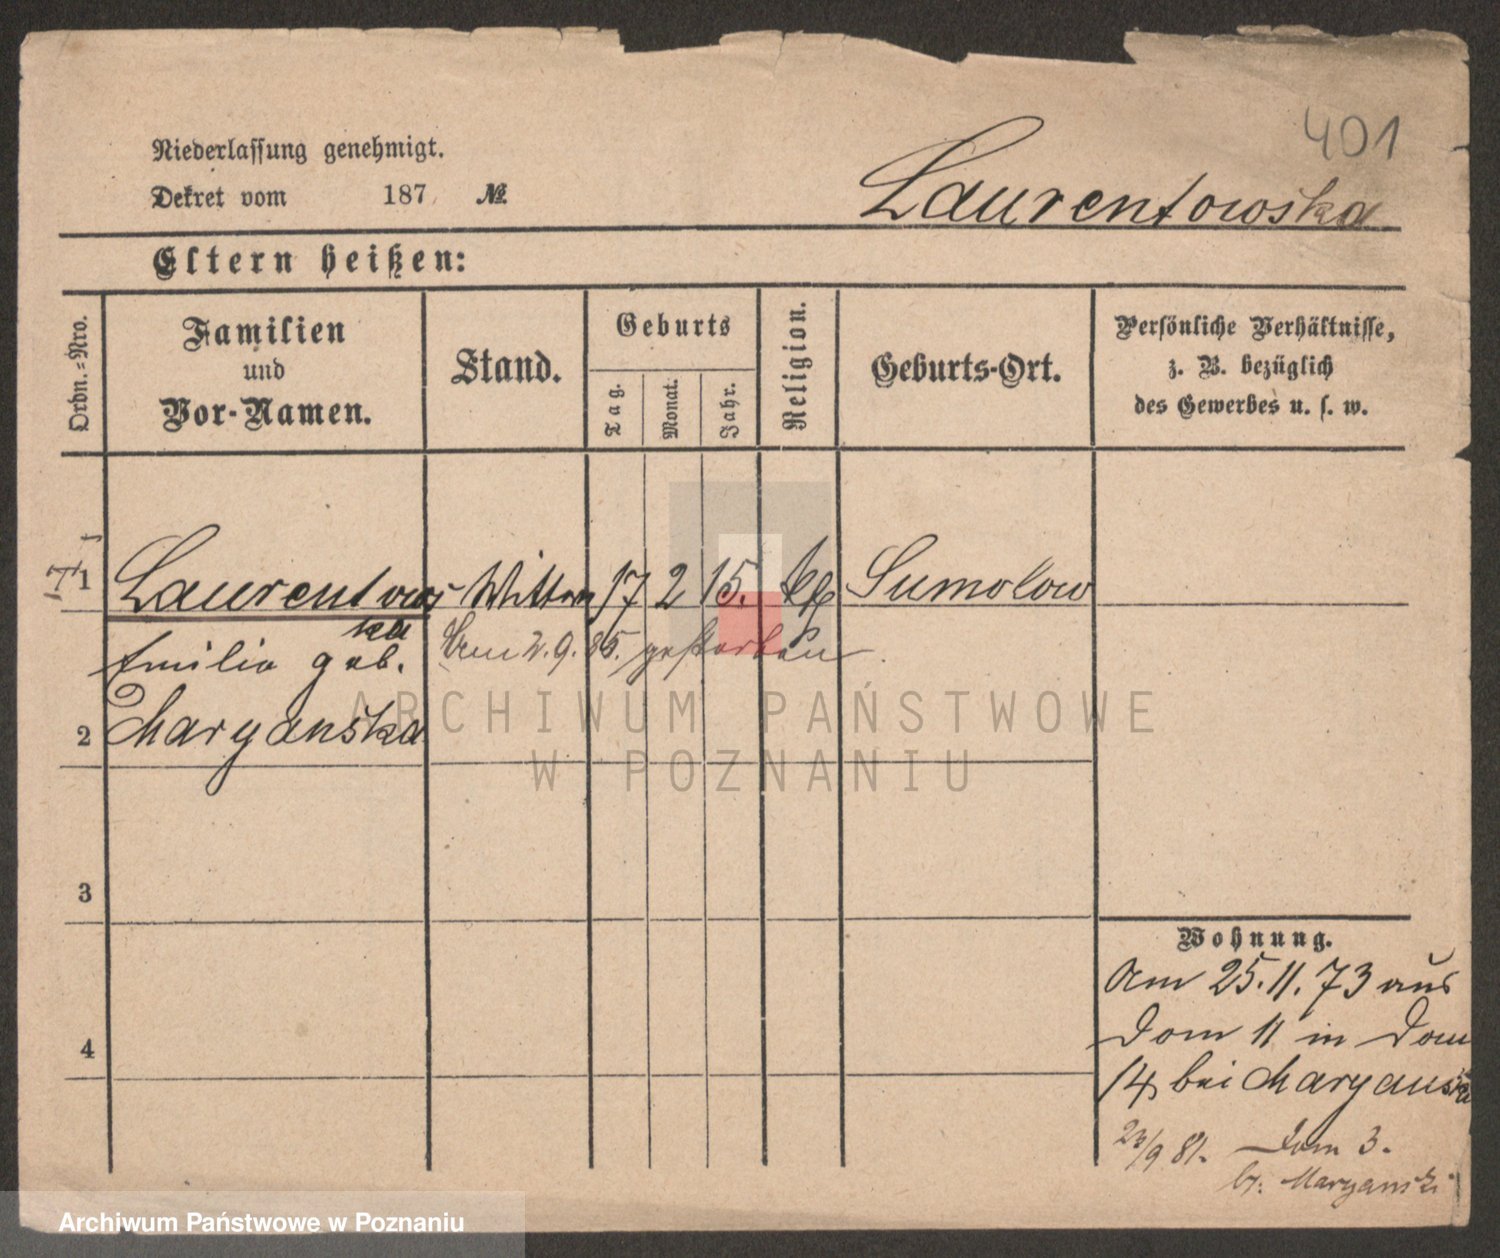 401
Niederlassung genehmigt.
Dekret vom 187 №
Laurentowska
Eltern heißen:
Ordn.-Nro.
Familien
und
Vor-Namen.
Stand.
Geburts
Tag.
Monat.
Jahr.
Religion.
Geburts-Ort.
Persönliche Verhältnisse,
z. B. bezüglich
des Gewerbes u. s. w.
1 Laurentows Wittwe 17 2 15. kth Sumolow
ka
Emilia geb. Am 2.9.85. gestorben.
2 Maryanska
ARCHIWUM PAŃSTWOWE
W POZNANIU
3
Wohnung.
Am 25.11.73 aus
Dom 11 in Dom
4
14 bei Maryanska
/9 81. Dom 3.
b. Maryanski
Archiwum Państwowe w Poznaniu